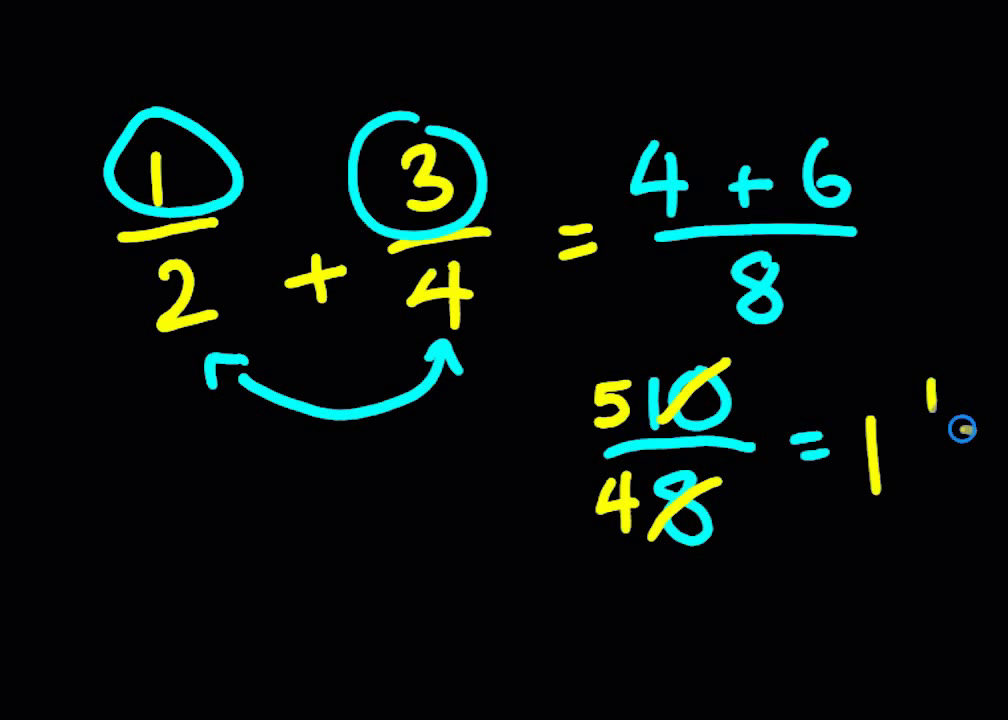 1/2 + 3/4 = 4 + 6/8
5 10/4 8 = 1 1